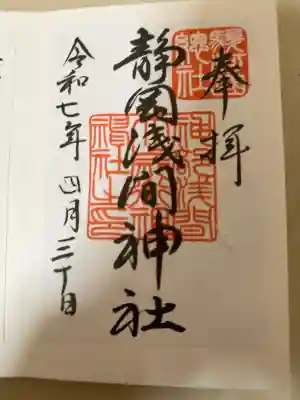 奉拝
静岡浅間神社
令和七年 四月三十日